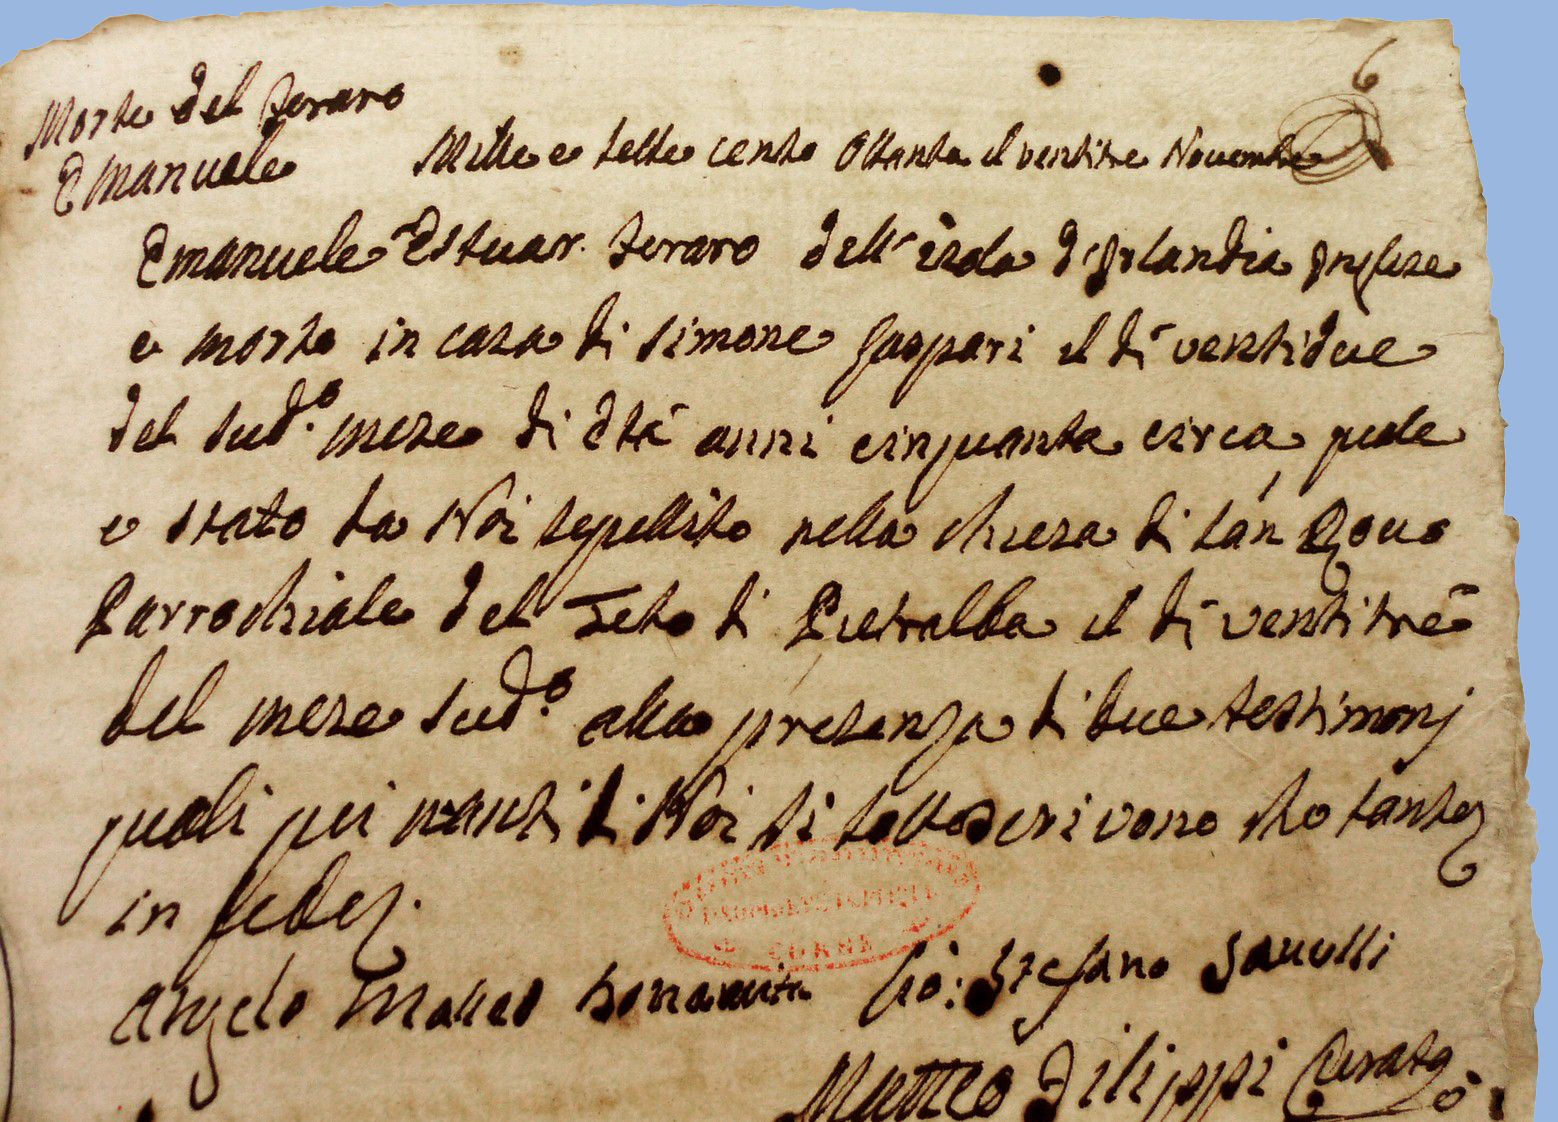 6
Morte del foraro
Emanuele
Mille e sette cento Ottanta il ventitre Novembre
Emanuele Estuar. foraro dell'isola d'Irlandia Inglese
e morto in casa di simone gaspari il di ventidue
del sud.o mese di Età anni cinquanta circa quale
e stato da Noi sepellito nella chiesa di san Roco
Parrochiale del Teto di Pietralba il di ventitre
del mese sud.o alla presenza di due testimonj
quali qui nanti di Noi si sottoscrivono che tante
in fede.
Angelo Matteo Bonavita Gio: Stefano Savelli
Matteo Filippi Curato
CORSE